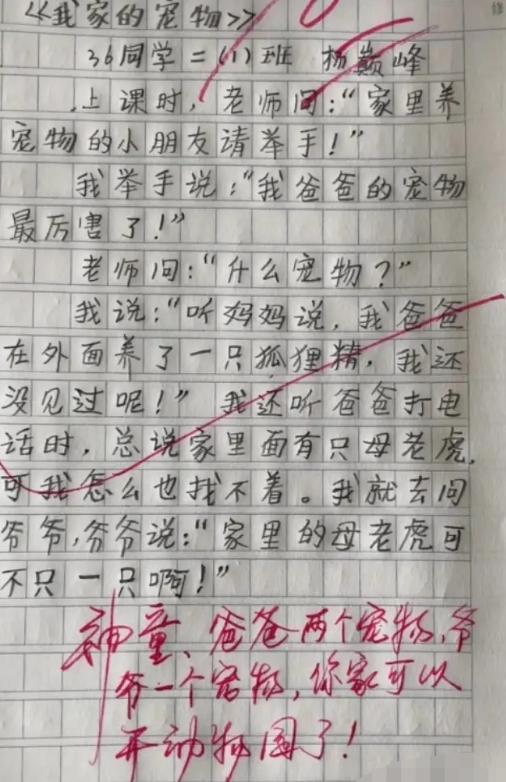 《我家的宠物》
36同学二(1)班 杨巅峰
上课时,老师问:“家里养
宠物的小朋友请举手!”
我举手说:“我爸爸的宠物
最厉害了!”
老师问:“什么宠物?”
我说:“听妈妈说,我爸爸
在外面养了一只狐狸精,我还
没见过呢!”我还听爸爸打电
话时,总说家里面有只母老虎,
可我怎么也找不着。我就去问
爷爷,爷爷说:“家里的母老虎可
不只一只啊!”
神童、爸爸两个宠物,爷
爷一个宠物,你家可以
开动物园了!